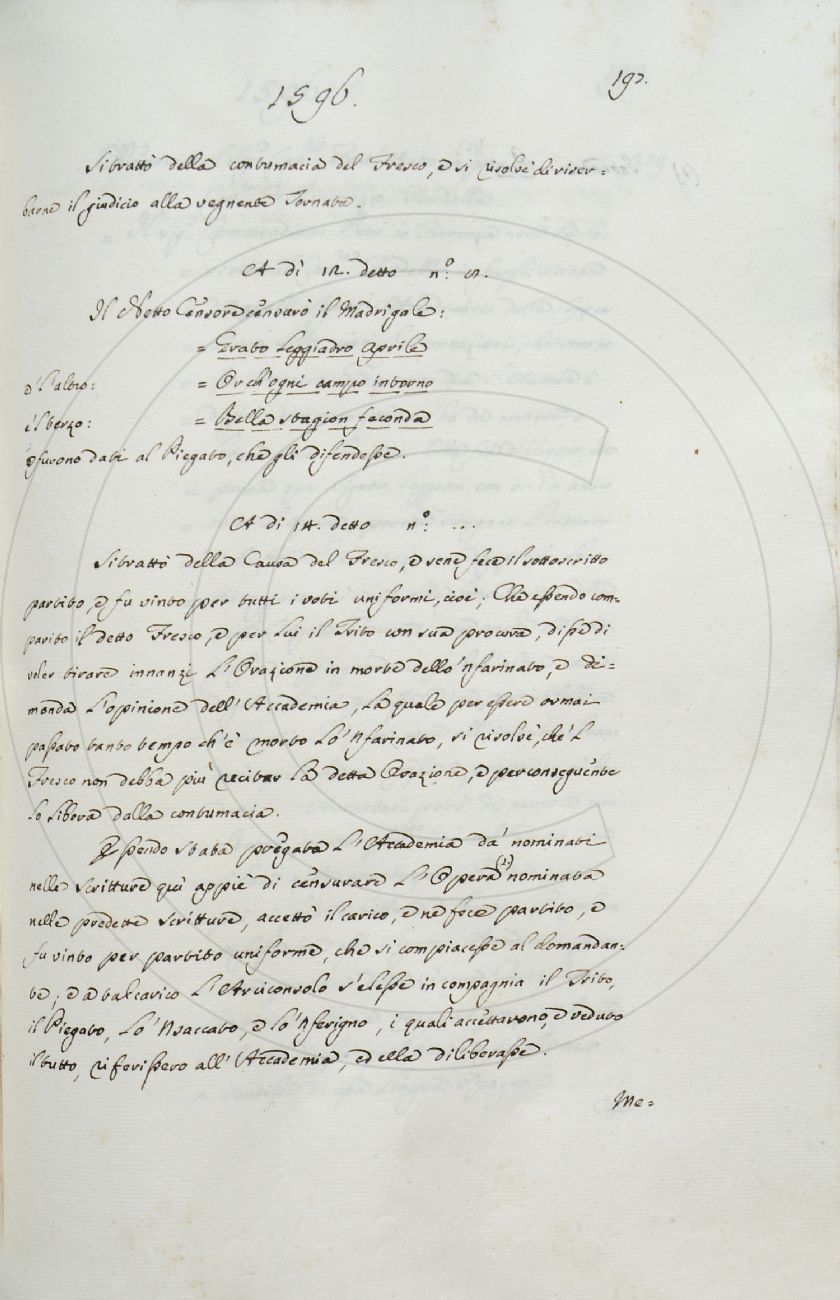 1596.
197.
Si trattò della contumacia del Fresco, e si risolvé di riser=
barne il giudicio alla vegnente Tornata.
A dì 12. detto nº:
Il detto Censore censurò il Madrigale:
= Grato leggiadro Aprile
e l'altro: = Or ch'ogni campo intorno
il terzo: = Bella stagion feconda
e furono dati al Piegato, che gli difendesse.
A dì 14. detto nº: ...
Si trattò della Causa del Fresco, e sene fece il sottoscritto
partito, e fu vinto per tutti i voti uniformi, cioè; Che essendo com=
parito il detto Fresco, e per lui il Trito con sua procura, disse di
voler tirare innanzi l'Orazione in morte dello 'nfarinato, e di=
manda l'opinione dell'Accademia, la quale per essere ormai
passato tanto tempo ch'è morto lo 'nfarinato, si risolvé, che 'l
Fresco non debba più recitar la detta Orazione, e per conseguente
lo libera dalla contumacia.
Essendo stata pregata l'Accademia da' nominati
nelle scritture quì appiè di censurare l'Opera (1) nominata
nelle predette scritture, accettò il carico, e ne fece partito, e
fu vinto per partito uniforme, che si compiacesse al domandan=
te; e a tal carico l'Arciconsolo s'elesse in compagnia il Trito,
il Piegato, lo 'nsaccato, e lo 'nferigno, i quali accettarono, e veduto
il tutto, riferissero all'Accademia, ed ella diliberasse.
Me=